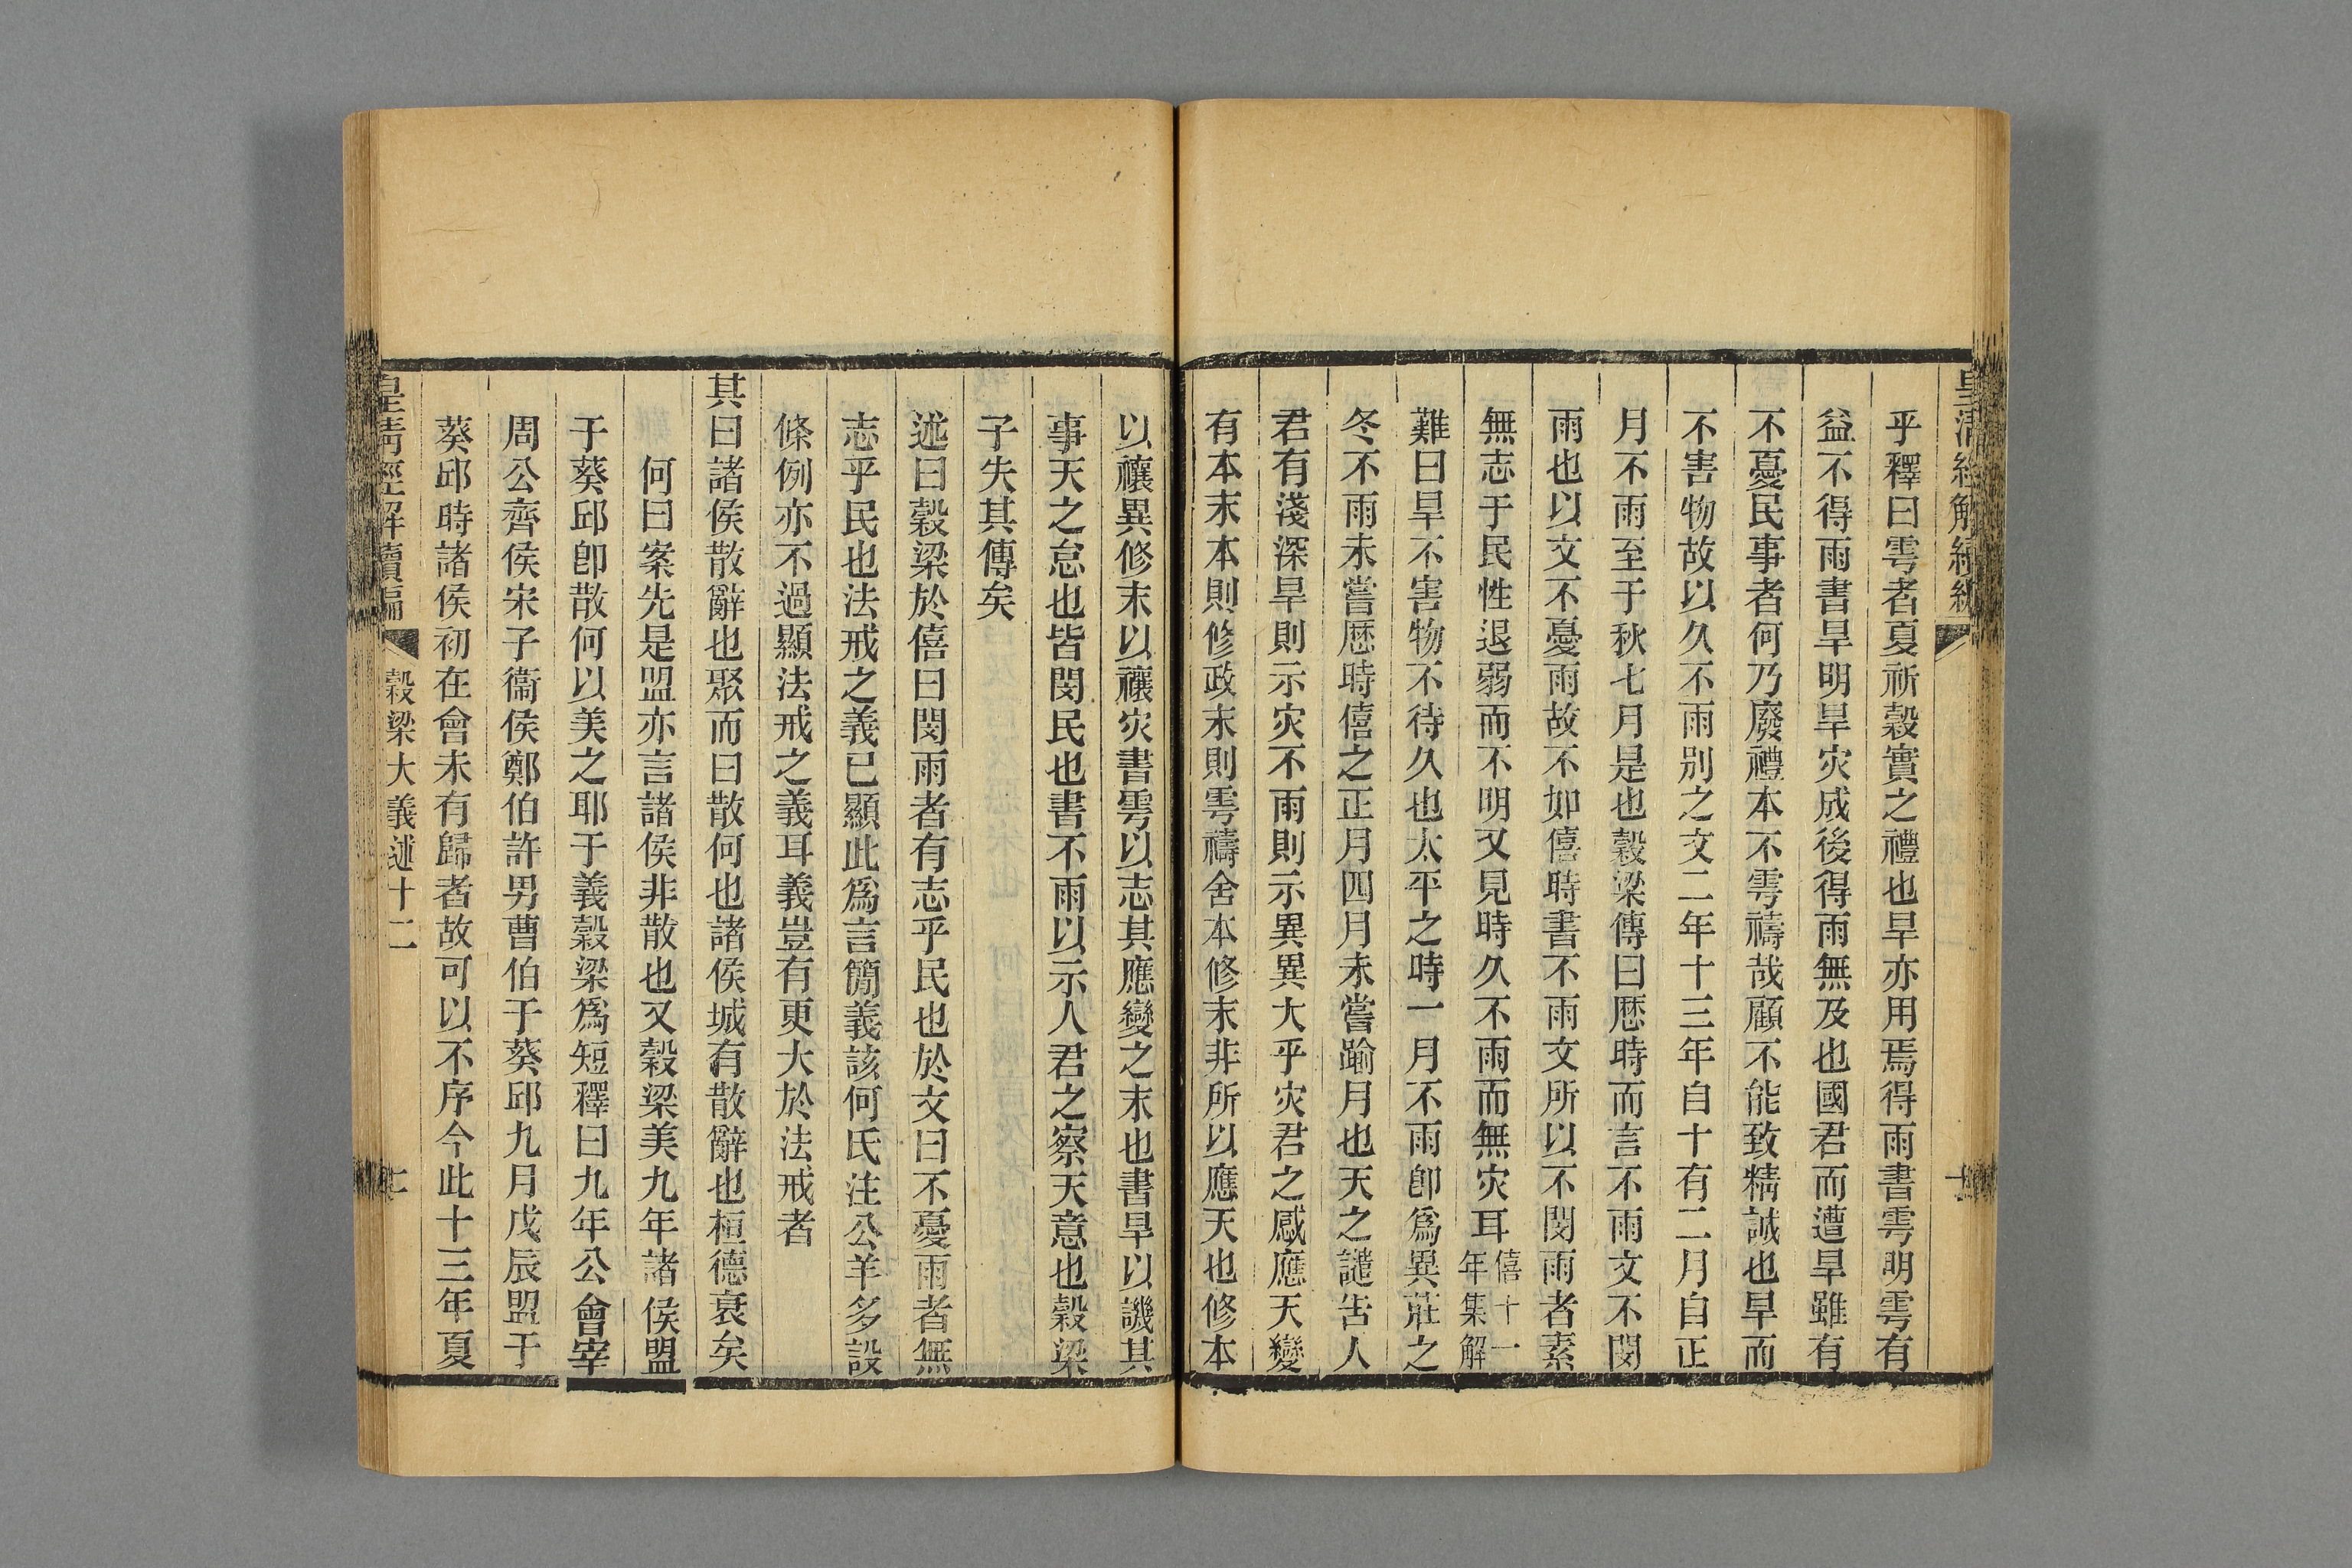 皇清經解續編
乎釋曰雩者夏祈穀實之禮也旱亦用焉得雨書雩明雩有
益不得雨書旱明旱灾成後得雨無及也國君而遭旱雖有
不憂民事者何乃廢禮本不雩禱哉顧不能致精誠也旱而
不害物故以久不雨別之文二年十三年自十有二月自正
月不雨至于秋七月是也穀梁傳曰歷時而言不雨文不閔
雨也以文不憂雨故不如僖時書不雨文所以不閔雨者素
無志于民性退弱而不明又見時久不雨而無灾耳僖十一年集解
難曰旱不害物不待久也太平之時一月不雨卽爲異莊之
冬不雨未嘗歷時僖之正月四月未嘗踰月也天之譴告人
君有淺深旱則示灾不雨則示異異大乎灾君之感應天變
有本末本則修政末則雩禱舍本修末非所以應天也修本
以禳異修末以禳灾書雩以志其應變之末也書旱以譏其
事天之怠也皆閔民也書不雨以示人君之察天意也穀梁
子失其傳矣
述曰穀梁於僖曰閔雨者有志乎民也於文曰不憂雨者無
志乎民也法戒之義已顯此爲言簡義該何氏注公羊多設
條例亦不過顯法戒之義耳義豈有更大於法戒者
其曰諸侯散辭也聚而曰散何也諸侯城有散辭也桓德衰矣
何曰案先是盟亦言諸侯非散也又穀梁美九年諸侯盟
于葵邱卽散何以美之耶于義穀梁爲短釋曰九年公會宰
周公齊侯宋子衞侯鄭伯許男曹伯于葵邱九月戊辰盟于
葵邱時諸侯初在會未有歸者故可以不序今此十三年夏
皇清經解續編 穀梁大義述十二